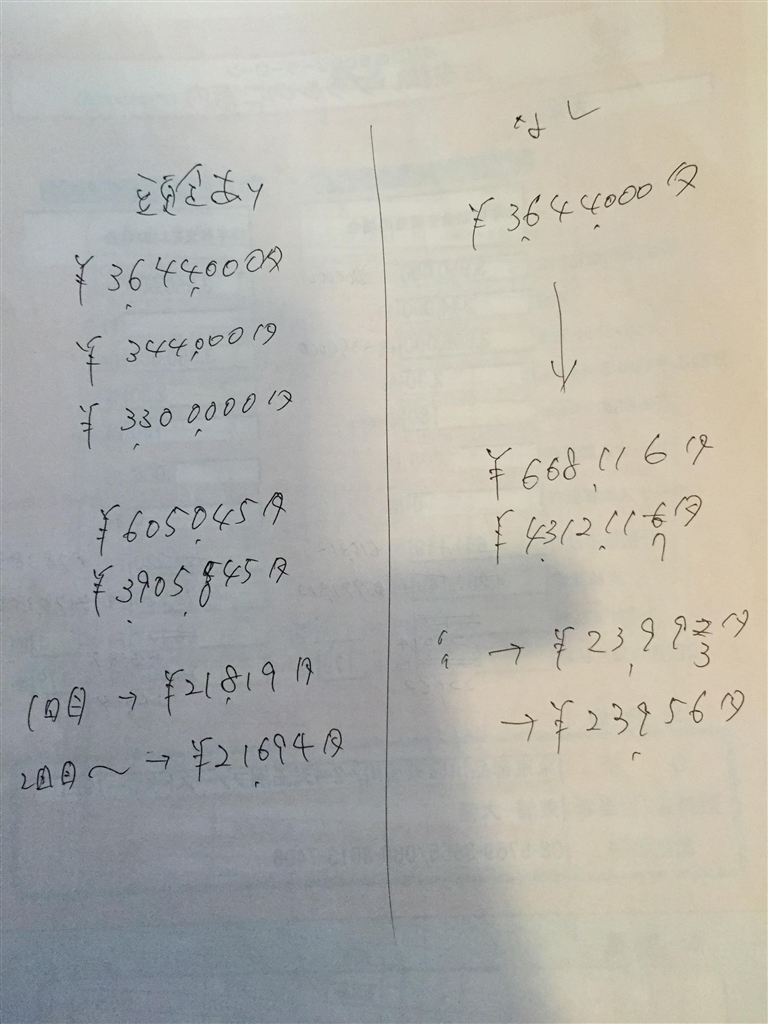 頭金あり
¥3,644,000円
¥344,000円
¥3,300,000円
¥605,045円
¥3,905,845円
1回目 → ¥21,819円
2回目〜 → ¥21,694円
なし
¥3,644,000円
↓
¥668,116円
¥4,312,116円
7
→ ¥23,992円
3
→ ¥23,956円